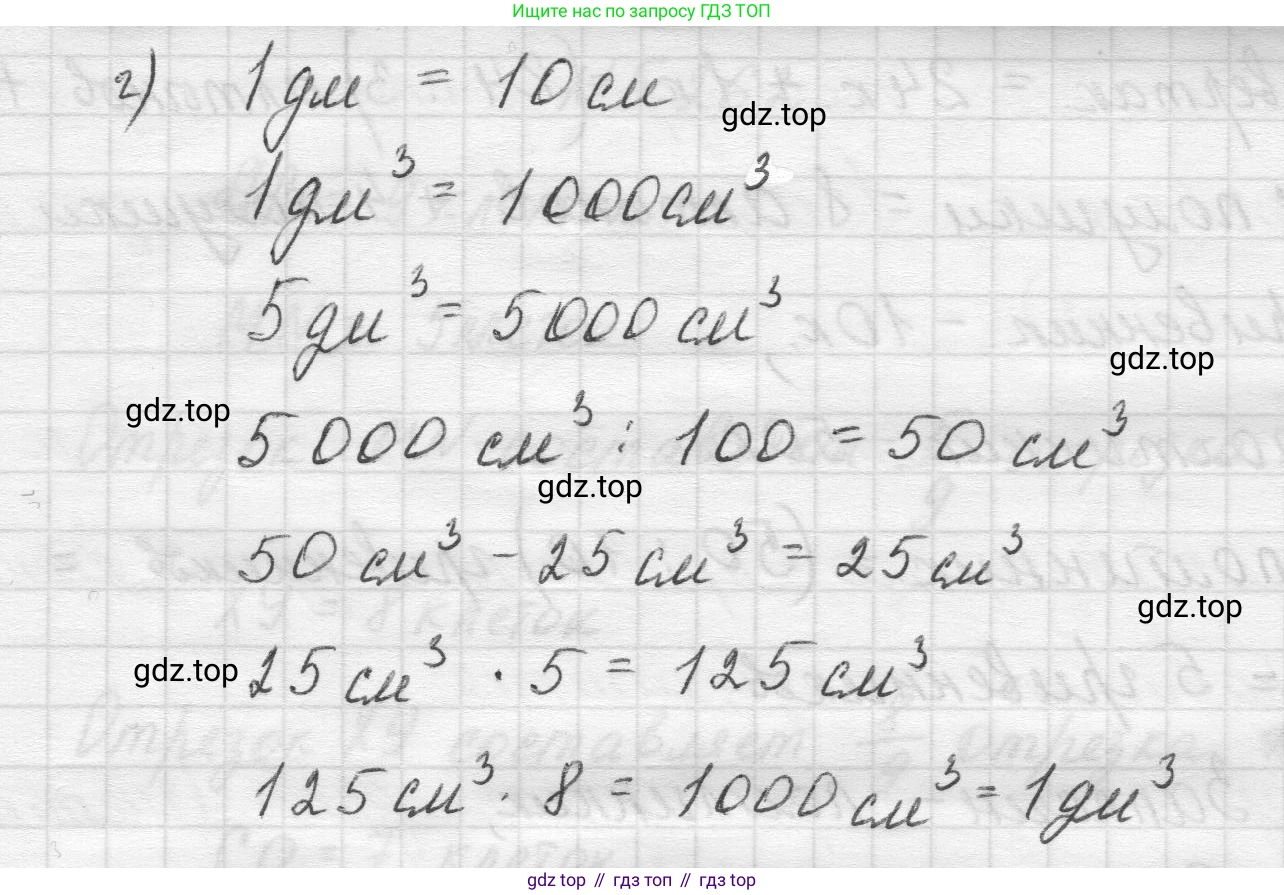 Ищите нас по запросу ГДЗ ТОП
г) 1 дм = 10 см
gdz.top
1 дм³ = 1000 см³
5 дм³ = 5000 см³
gdz.top
gdz.top
5000 см³ : 100 = 50 см³
gdz.top
50 см³ - 25 см³ = 25 см³
gdz.top
gdz.top
25 см³ · 5 = 125 см³
125 см³ · 8 = 1000 см³ = 1 дм³
gdz top // гдз топ // гдз top